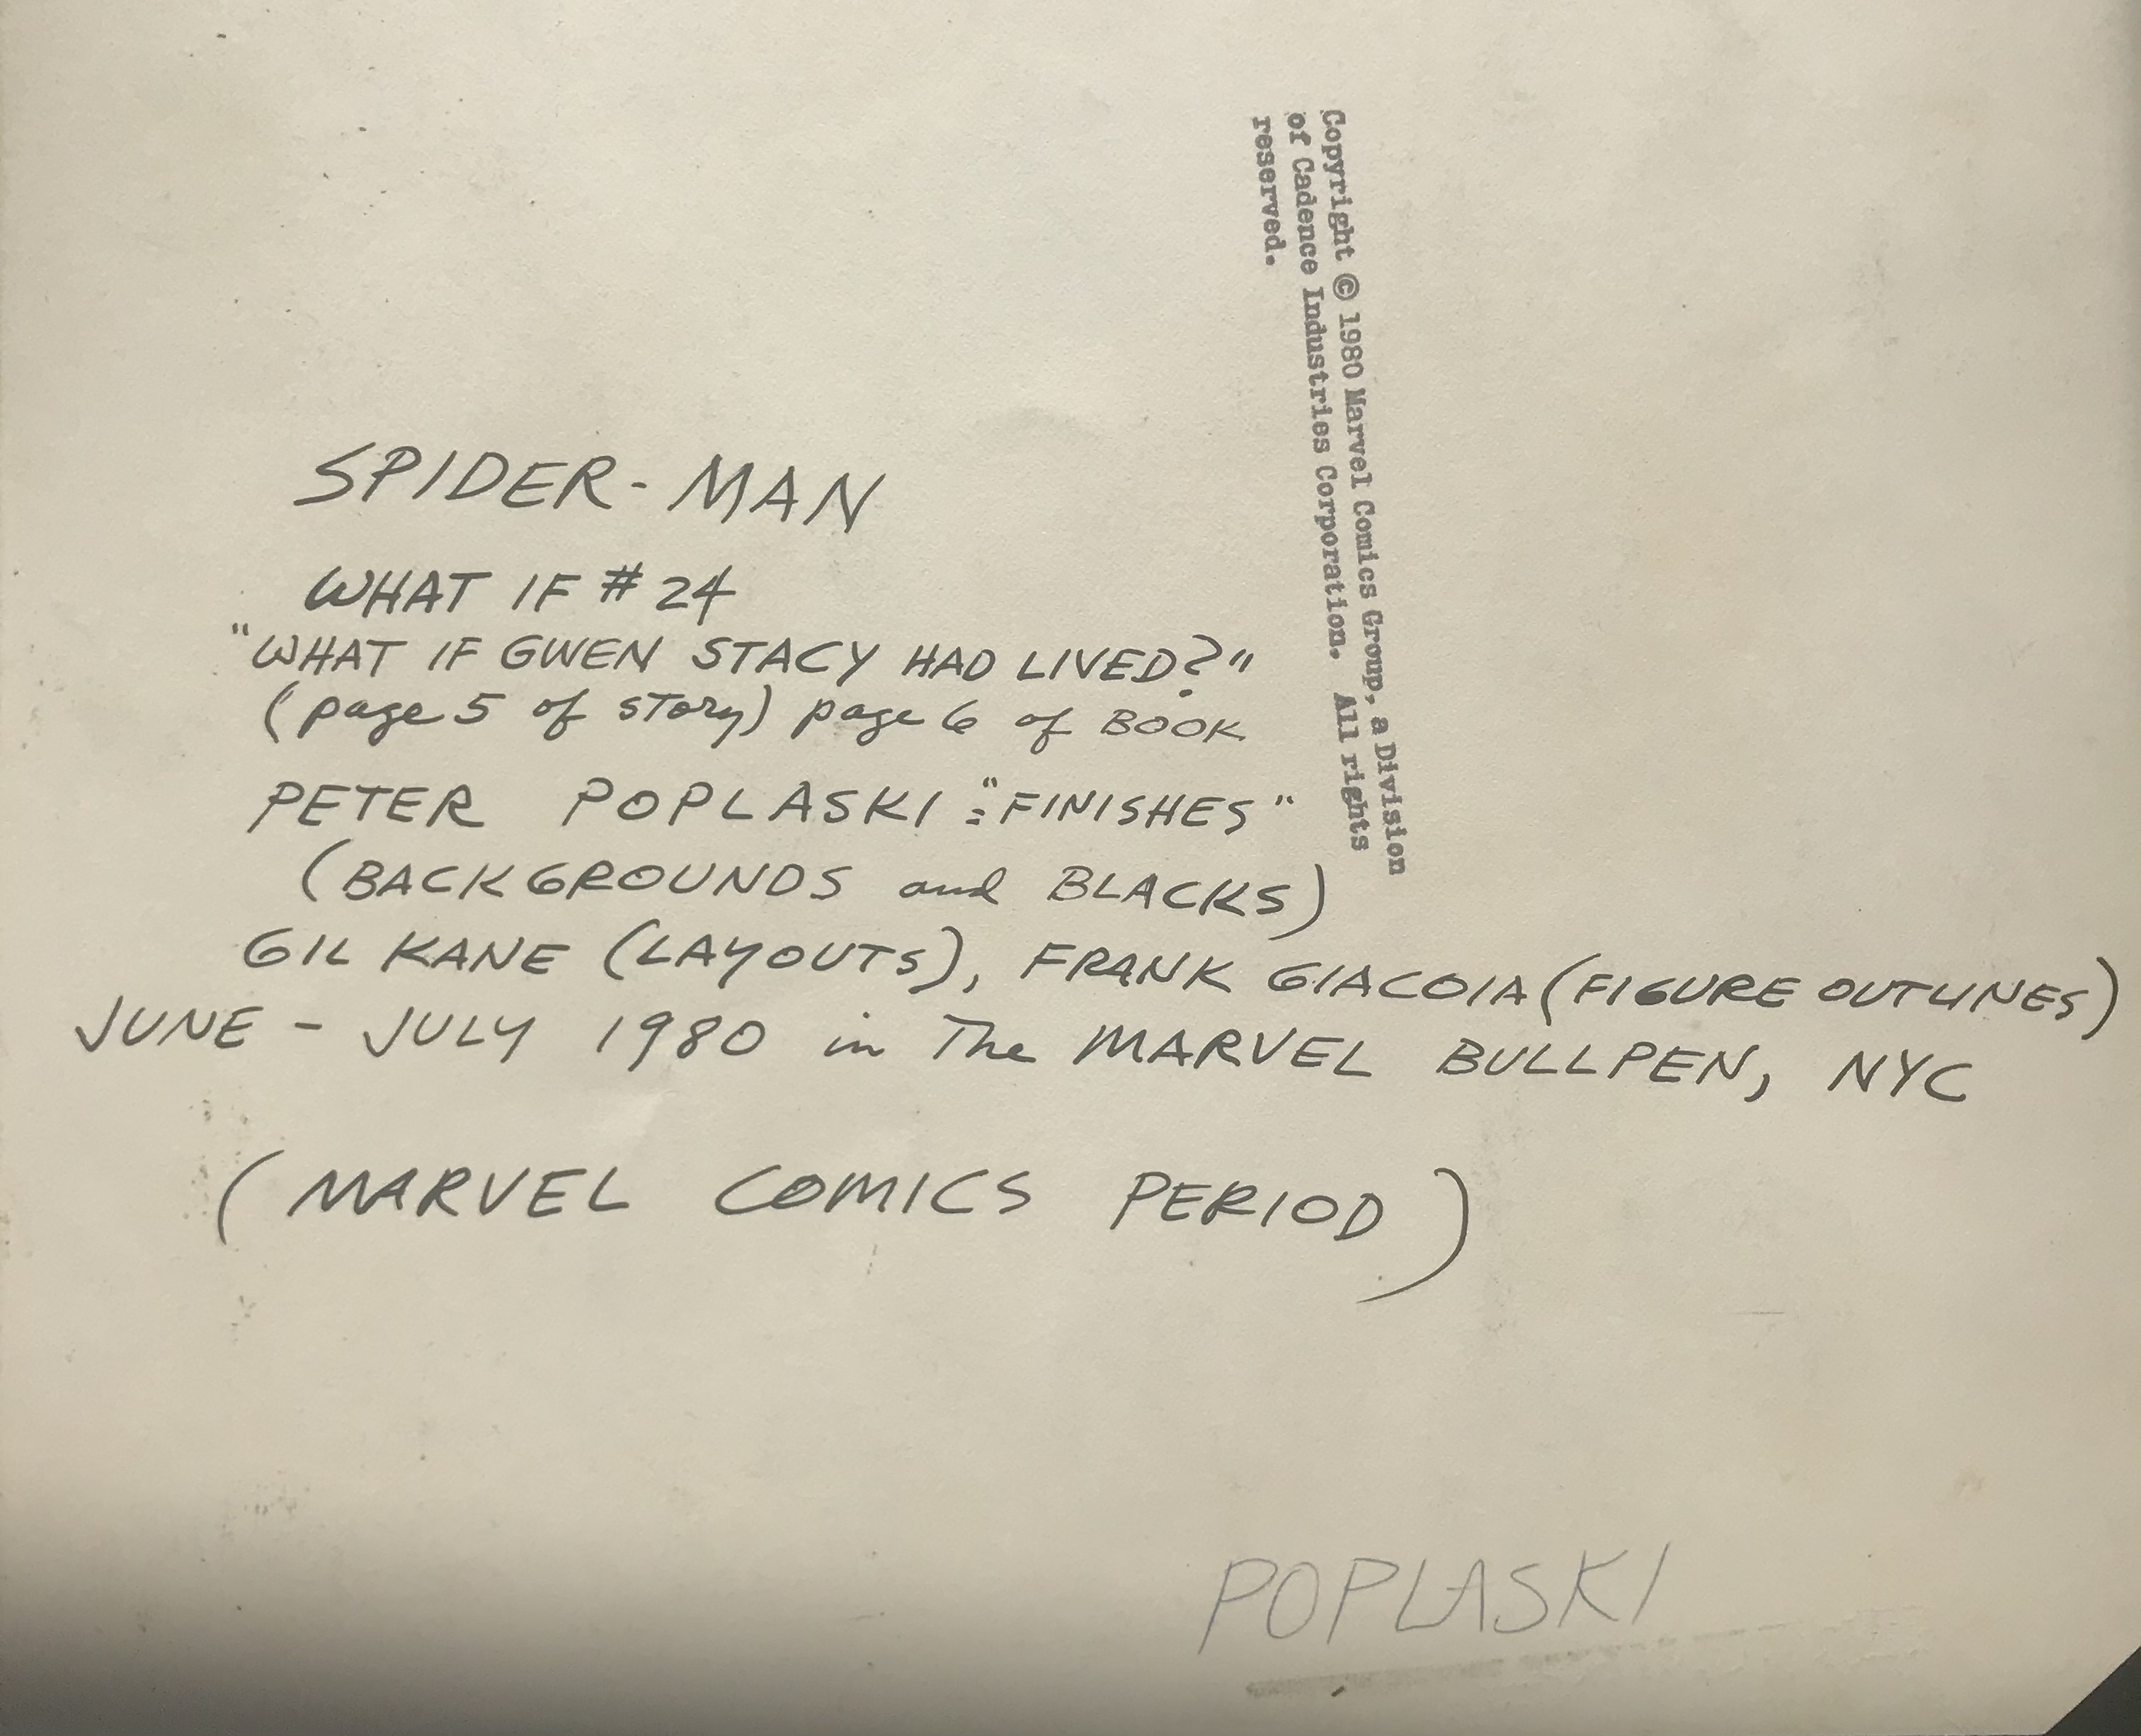 Copyright © 1980 Marvel Comics Group, a Division
of Cadence Industries Corporation. All rights
reserved.
SPIDER-MAN
WHAT IF #24
"WHAT IF GWEN STACY HAD LIVED?"
(page 5 of story) page 6 of BOOK
PETER POPLASKI: "FINISHES"
(BACKGROUNDS and BLACKS)
GIL KANE (LAYOUTS), FRANK GIACOIA (FIGURE OUTLINES)
JUNE - JULY 1980 in The MARVEL BULLPEN, NYC
(MARVEL COMICS PERIOD)
POPLASKI